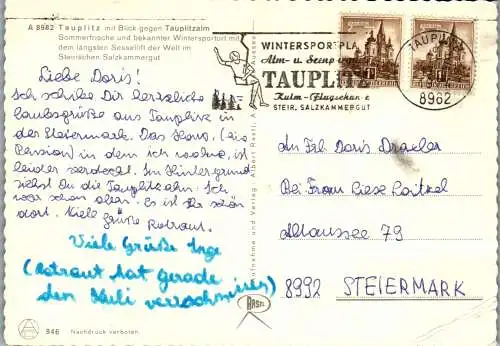 A 8982 Tauplitz mit Blick gegen Tauplitzalm
Sommerfrische und bekannter Wintersportort mit
dem längsten Sessellift der Welt im
Steirischen Salzkammergut
Liebe Doris!
Ich schicke Dir herzliche
Urlaubsgrüße aus Tauplitz in
der Steiermark. Das Haus, (die
Pension) in dem ich wohne, ist
leider verdeckt. Im Hintergrund
siehst Du die Tauplitzalm. Ich
war schon oben. Es ist sehr schön
dort. Viele Grüße Rotraut.
Viele Grüße Inge
(Rotraut hat gerade
den Kuli verschmissen)
346 Nachdruck verboten.
Aufnahme und Verlag: Albert Rastl, Aussee
RASTL
WINTERSPORTPLA
Alm- u. Seenp
TAUPLITZ
Kulm-Flugschan
STEIR. SALZKAMMERGUT
TAUPLITZ
8982
An Frl. Doris
Bei Frau Liese
Altaussee 79
8992 STEIERMARK